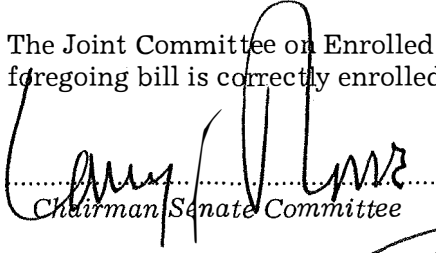 The Joint Committee on Enrolled
foregoing bill is correctly enrolled
Chairman Senate Committee